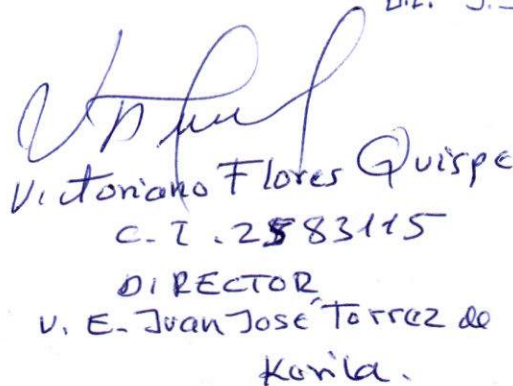 Victoriano Flores Quispe
C.I. 2583115
DIRECTOR
U.E. Juan José Torrez de
Karila.